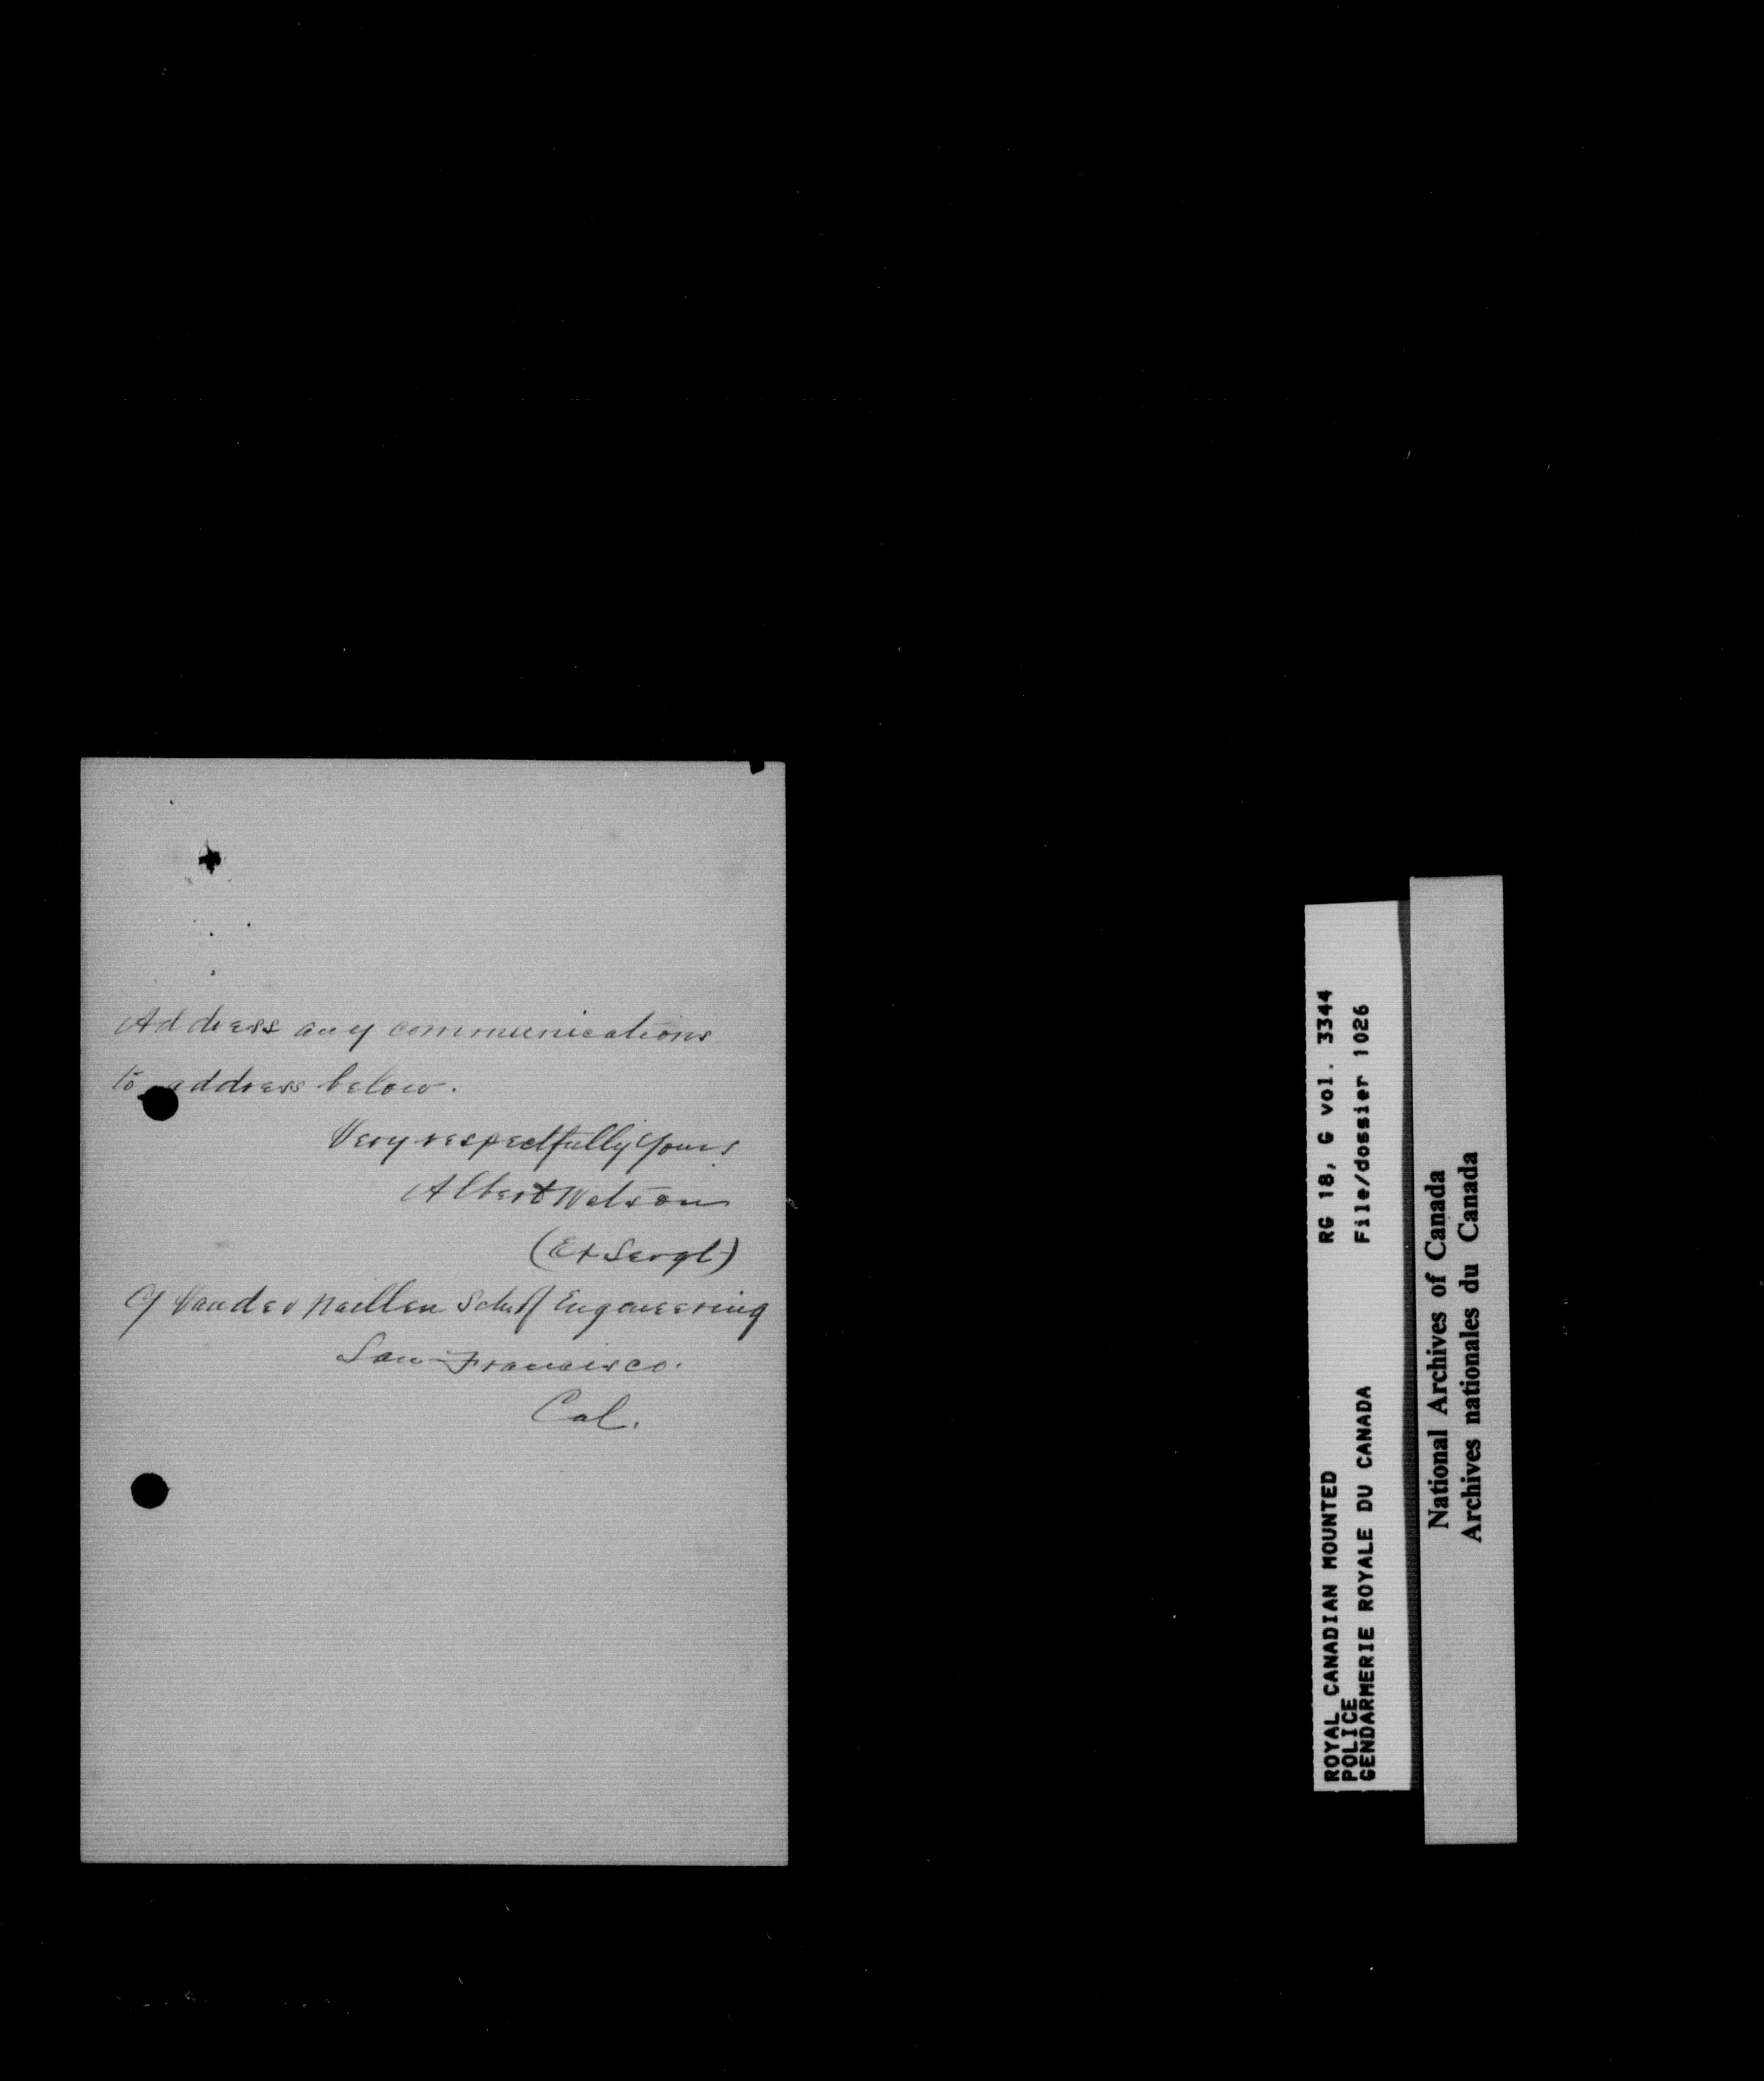 Address any communications
to address below.
Very respectfully Yours
Albert Watson
(Ex Sergt)
c/ Vander Naillen Sch of Engineering
San Francisco.
Cal.
ROYAL CANADIAN MOUNTED
POLICE
GENDARMERIE ROYALE DU CANADA
RG 18, G vol. 3344
File/dossier 1026
National Archives of Canada
Archives nationales du Canada